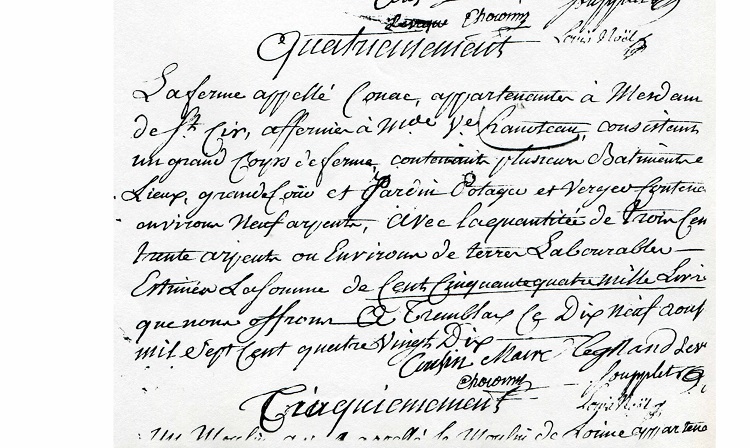 Levêque Choconny
Louis Noël
Quatriemement
La ferme appellé Conac, appartenantes à Mesdam
de St. Cir, affermée à Mde. Ve. hanoteau, consistant
un grand Corps de ferme, contenant plusieurs Batiments e
Lieux, grande Cour et Jardin Potager et Verger Contena
environ Neuf arpents, avec la quantitée de trois Cen
trente arpents ou Environs de terres Labourables
Estimées La Somme de Cent Cinquante quatre Mille Livre
que nous offrons A Tremblay Ce Dix Neuf aout
mil Sept Cent quatre Vingts Dix
Cousin Maire Legrand
Choconny Soupplet
Louis Noël
Cinquiemement
Un Moulin appellé le Moulin de appartena